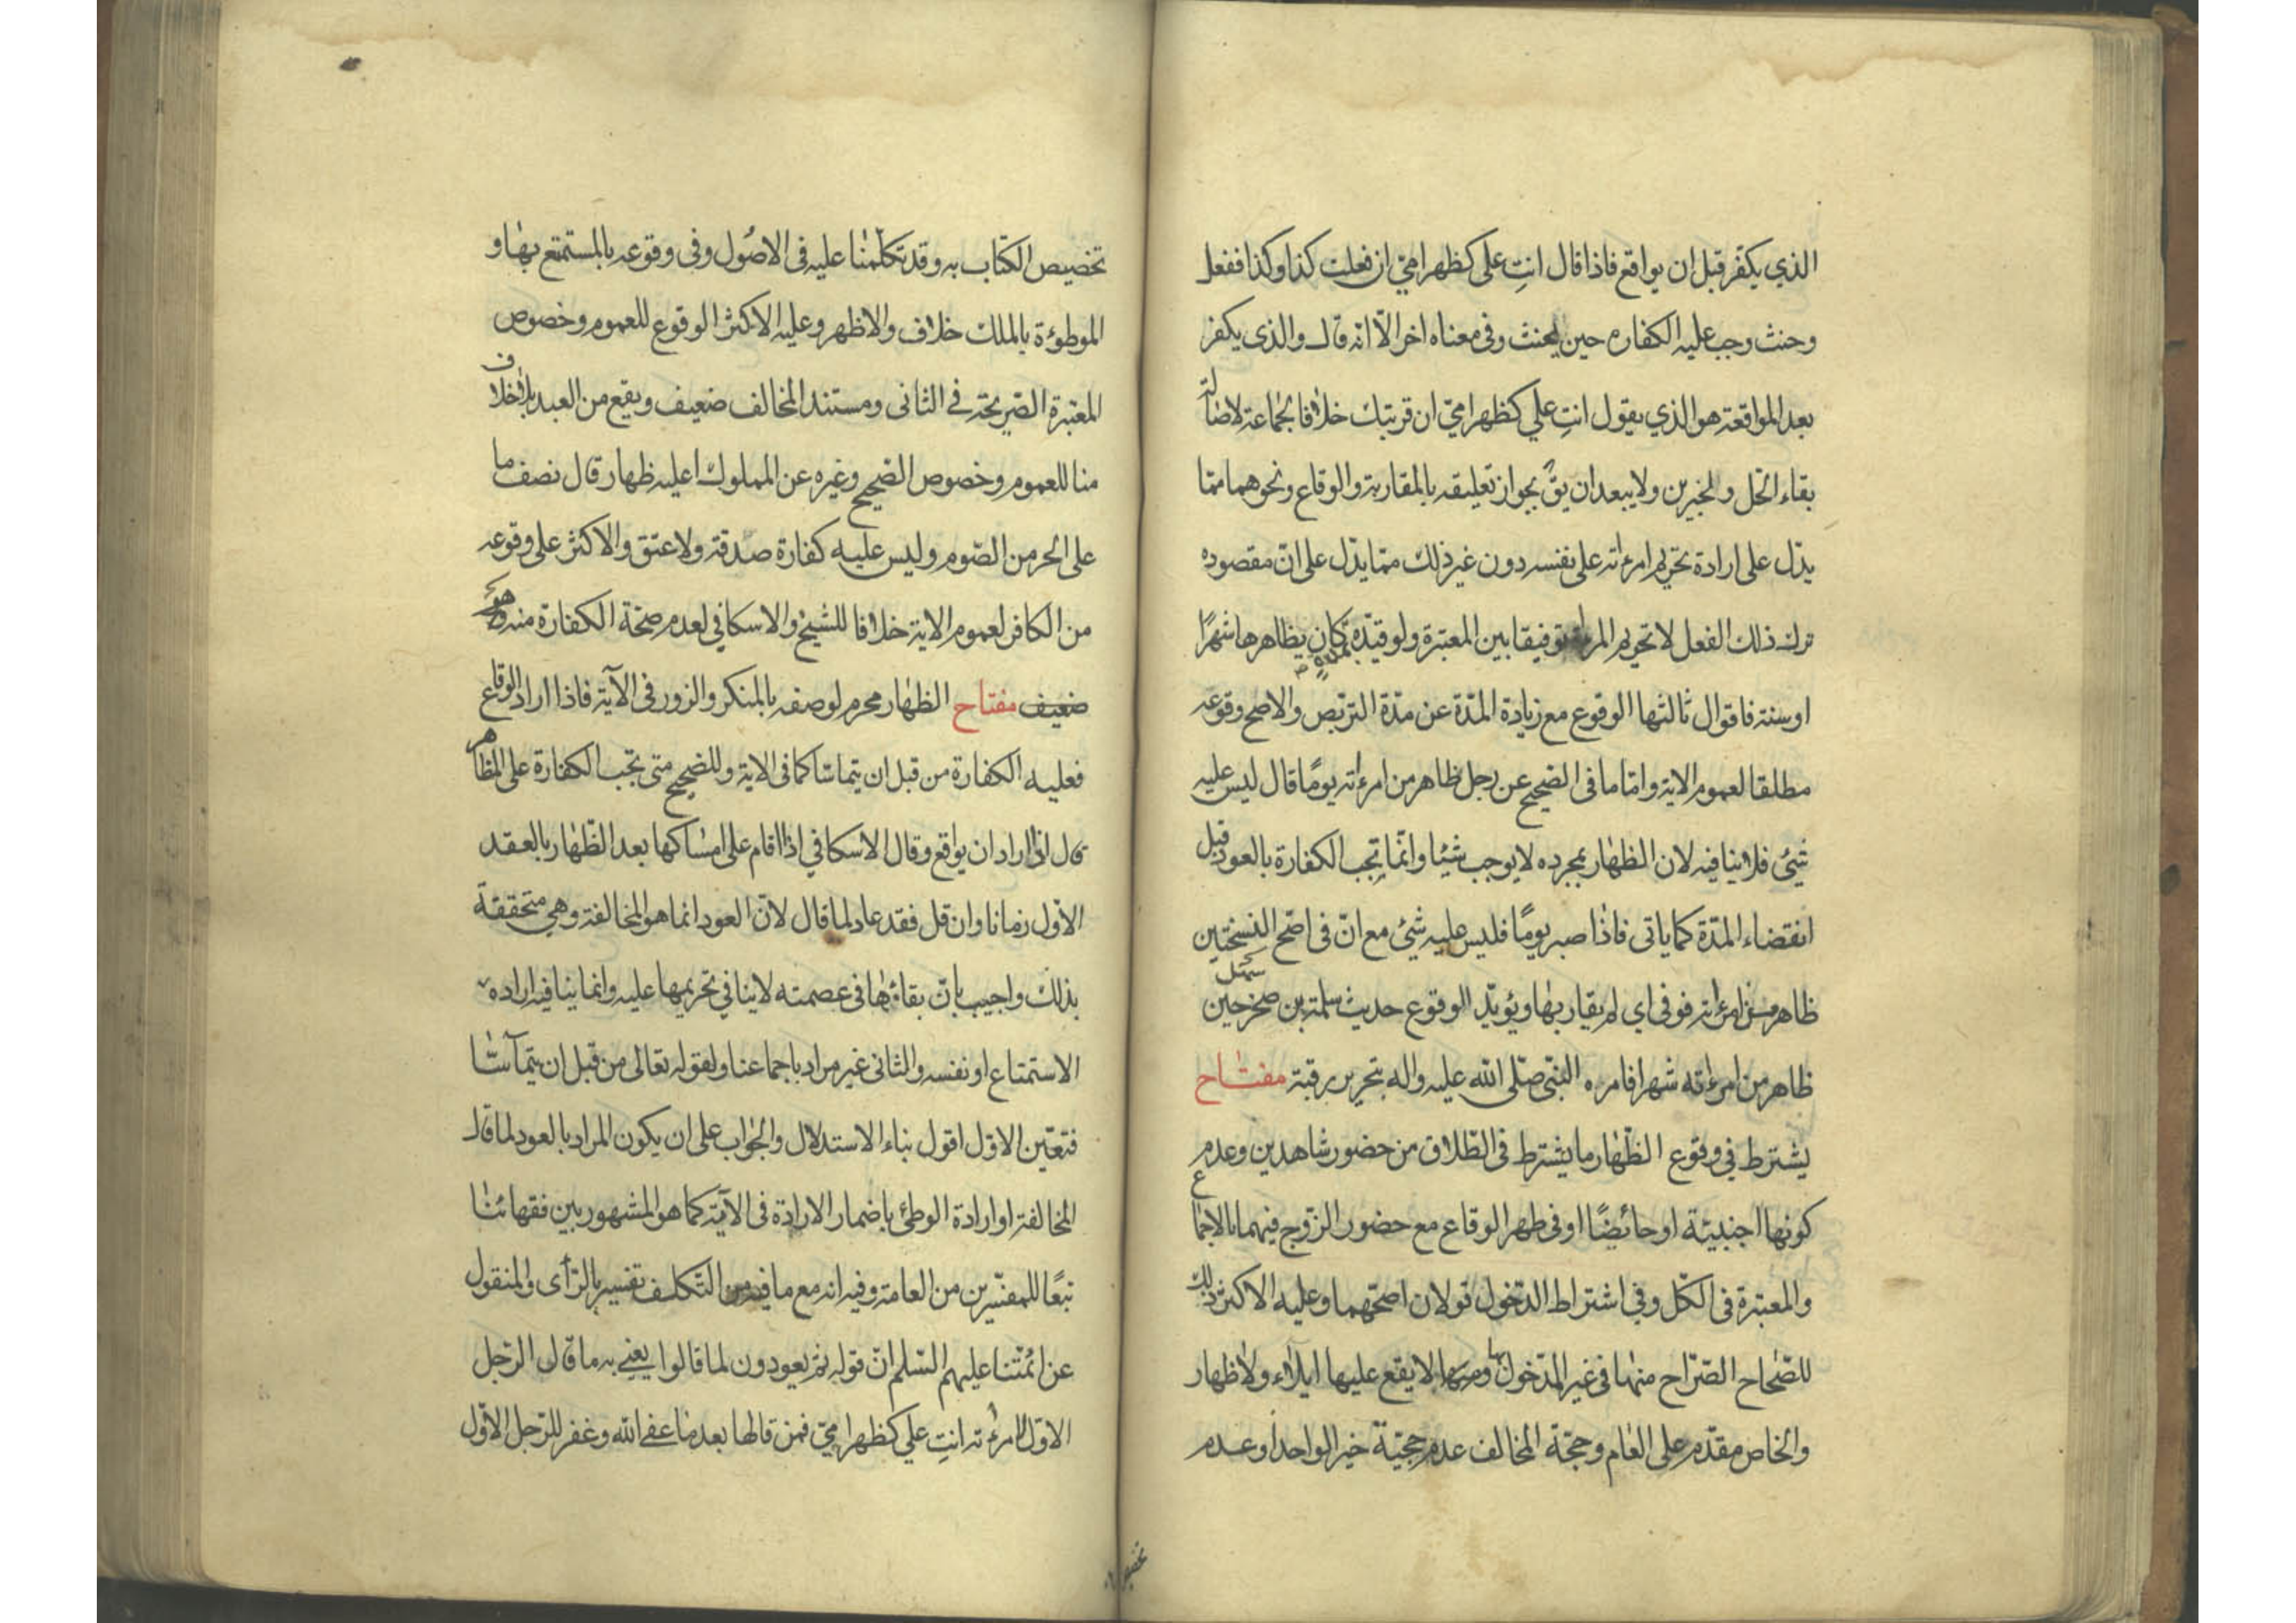 الذي يكفر قبل ان يواقع فاذا قال انتِ على كظهر امّي ان فعلت كذا وكذا ففعل
وحنث وجب عليه الكفاره حين يحنث وفى معناه اخر الّا انه قال والذى يكفر
بعد المواقعة هو الذي يقول انتِ علي كظهر امّي ان قربتك خلافا لجماعة لاصالة
بقاء الحل والخبرين ولا يبعد ان يقّ بجواز تعليقه بالمقاربة والوقاع ونحوهما ممّا
يدّل على ارادة تحريم امرءاته على نفسه دون غير ذلك ممّا يدّل على انّ مقصوده
ترك ذلك الفعل لا تحريم المرءة توفيقا بين المعتبرة ولو قيّده بمدة كان يظاهرها شهرًا
او سنة فاقوال ثالثها الوقوع مع زيادة المدّة عن مدّة التربّص والاصح وقوعه
مطلقا لعموم الاية وامّا ما فى الصّحيح عن رجل ظاهر من امرءاته يومًا قال ليس عليه
شيئ فلا ينافيه لان الظهار بمجرده لا يوجب شيئا وانّما تجب الكفارة بالعود قبل
انقضاء المدّة كما ياتى فاذا صبر يومًا فليس عليه شيئ مع انّ فى اصّح النسختين
ظاهر من امرءاته فوفى اي لم يقاربها ويؤيّد الوقوع حديث سلمة بن صخر حين سئل
ظاهر من امرءاته شهرا فامره النبّى صلّى الله عليه واله بتحرير رقبة مفتاح
يشترط في وقوع الظّهار ما يشترط فى الطّلاق من حضور شاهدين وعدم
كونها اجنبيّة او حائضًا او فى طهر الوقاع مع حضور الزّوج فيهما بالاجماع
والمعتبرة فى الكّل وفي اشتراط الدّخول قولان اصحّهما وعليه الاكثر ذلك
للصّحاح الصّراح منها فى غير المدخول بها ومنها لا يقع عليها ايلاء ولا ظهار
والخاص مقدّم على العام وحجّة المخالف عدم حجيّة خبر الواحد او عدم
تخصيص
تخصيص الكتاب به وقد تكلّمنا عليه فى الاصُول وفى وقوعه بالمستمتع بها و
الموطوءة بالملك خلاف والاظهر وعليه الاكثر الوقوع للعموم وخصوص
المعتبرة الصّريحة في الثانى ومستند المخالف ضعيف ويقع من العبد بلا خلاف
منا للعموم وخصوص الصّحيح وغيره عن المملوك اعليه ظهار قال نصف ما
على الحر من الصّوم وليس عليه كفارة صدقة ولا عتق والاكثر على وقوعه
من الكافر لعموم الاية خلافا للشيخ والاسكافي لعدم صحّة الكفارة منه وهو
ضعيف مفتاح الظهار محرم لوصفه بالمنكر والزور فى الآية فاذا اراد الوقاع
فعليه الكفارة من قبل ان يتماسّا كما فى الاية وللصّحيح متى تجب الكفارة على المظاهر
قال اذا اراد ان يواقع وقال الاسكافي اذا اقام على امساكها بعد الظّهار بالعقد
الاوّل زمانا وان قل فقد عاد لما قال لانّ العود انما هو المخالفة وهي متحققة
بذلك واجيب بانّ بقاؤها فى عصمته لا ينافي تحريمها عليه وانما ينافيه ارادة
الاستمتاع او نفسه والثانى غير مراد باجماعنا ولقوله تعالى من قبل ان يتماسّا
فتعيّن الاوّل اقول بناء الاستدلال والجواب على ان يكون المراد بالعود لما قال
المخالفة او ارادة الوطئ باضمار الارادة فى الآية كما هو المشهور بين فقهائنا
تبعًا للمفسّرين من العامة وفيه انه مع ما فيه من التكلف تفسير بالرّأى والمنقول
عن ائمّتنا عليهم السّلم انّ قوله ثم يعودون لما قالوا يعني به ما قال الرّجل
الاوّل لامرءته انتِ علي كظهر امّي فمن قالها بعد ما عفى الله وغفر للرّجل الاوّل